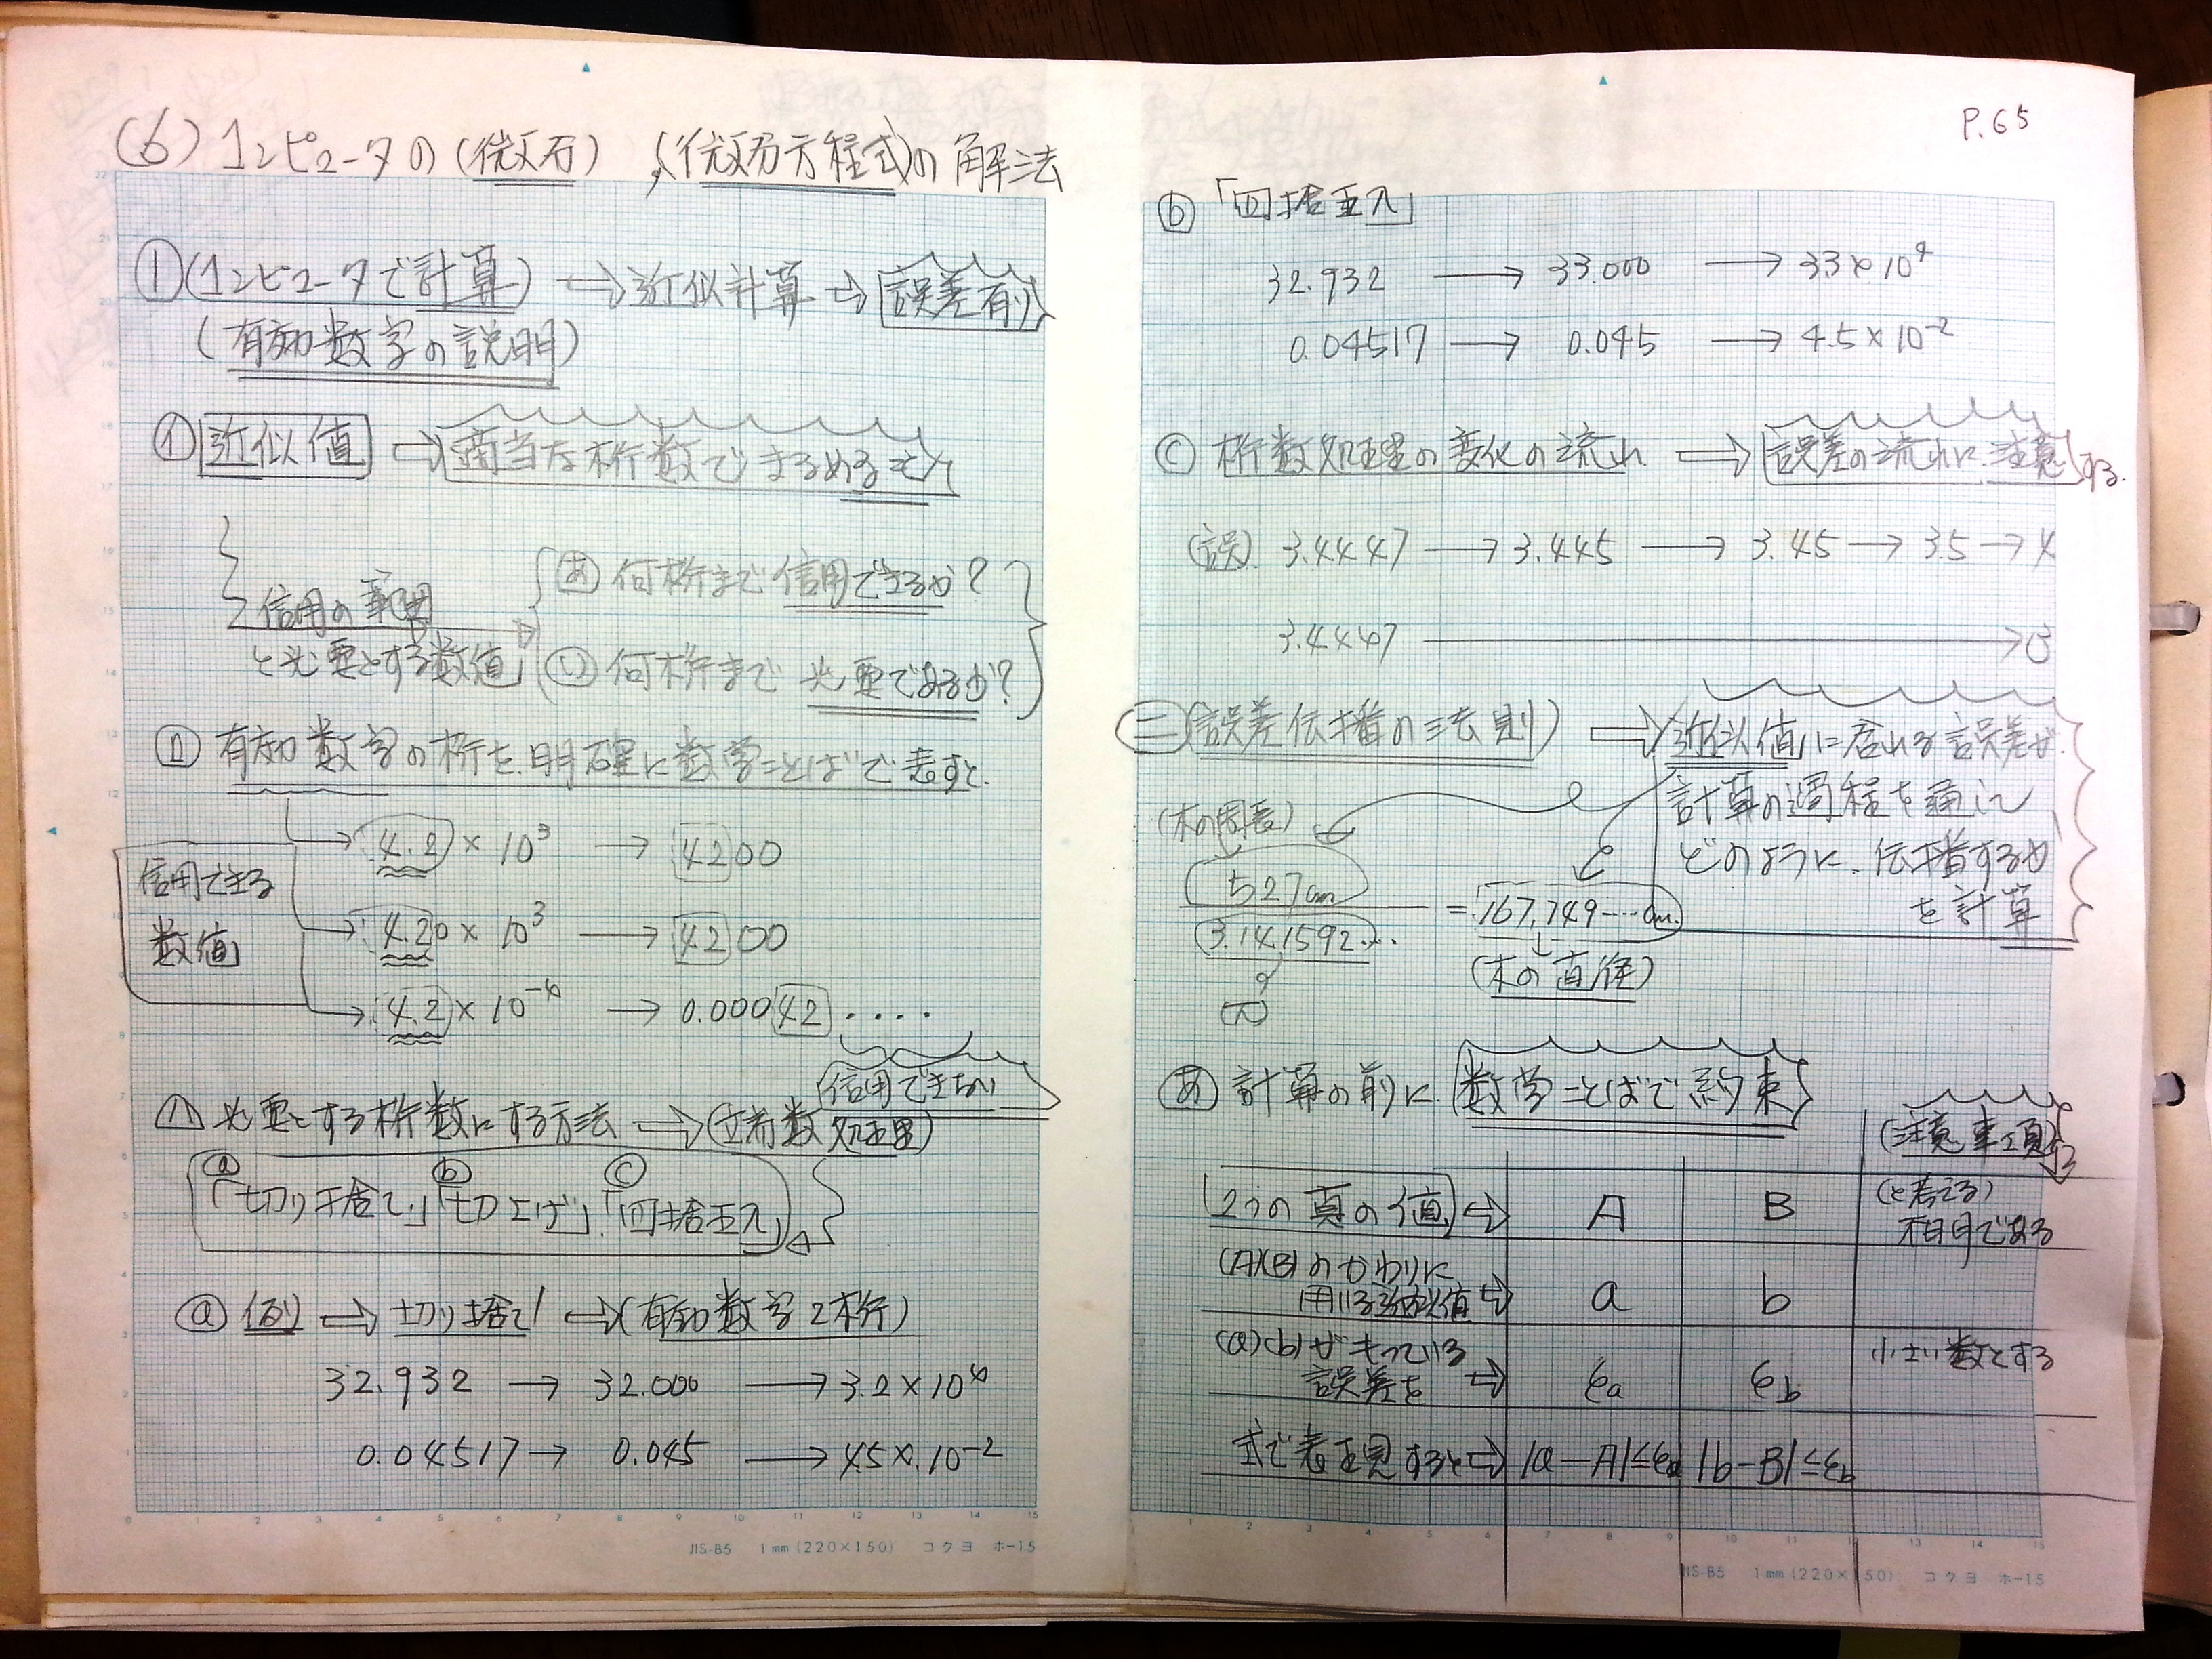 (6) コンピュータの(微分)、(微分方程式)の解法
① (コンピュータで計算) → 近似計算 → 誤差有り
(有効数字の説明)
イ 近似値 ⇒ 適当な桁数でまるめること
信用の範囲
と必要とする数値
あ 何桁まで信用できるか?
い 何桁まで必要であるか?
ロ 有効数字の桁を明確に数学ことばで表すと
信用できる
数値
4.2 × 10³ → 4200
4.20 × 10³ → 4200
4.2 × 10⁻⁴ → 0.00042 ‥‥
信用できない
ハ 必要とする桁数にする方法 ⇒ (端数処理)
ⓐ ⓑ ⓒ
「切り捨て」「切上げ」「四捨五入」
ⓐ 例 ⇒ 切り捨て ⇒ (有効数字2桁)
32.932 → 32.000 → 3.2×10⁴
0.04517 → 0.045 → 4.5×10⁻²
JIS-B5 1mm(220×150) コクヨ ホ-15
P.65
ⓑ 「四捨五入」
32.932 → 33.000 → 33×10⁴
0.04517 → 0.045 → 4.5×10⁻²
ⓒ 桁数処理の変化の流れ ⇒ 誤差の流れに注意する.
(誤) 3.4447 → 3.445 → 3.45 → 3.5 → 4
3.4447 → 3
ニ (誤差伝播の法則) ⇒ 近似値に含れる誤差が
計算の過程を通して
どのように伝播するか
を計算
(木の周長)
527cm
3.141592‥ = 167,749‥‥cm.
(π)
(木の直径)
あ 計算の前に 数学ことばで約束
(注意事項)
(2つの真の値) ⇒ A B (と考える)
不明である
(A)(B)のかわりに
用いる近似値 ⇒ a b
(a)(b)がもっている
誤差を ⇒ εa εb 小さい数とする
式で表現すると ⇒ |a−A|≤εa |b−B|≤εb
JIS-B5 1mm(220×150) コクヨ ホ-15